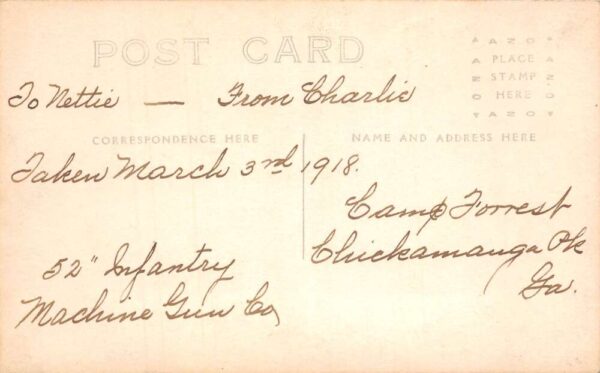 POST CARD
AZOA
PLACE
STAMP
HERE
AZOA
To Nettie — From Charlie
CORRESPONDENCE HERE
NAME AND ADDRESS HERE
Taken March 3rd 1918.
Camp Forrest
Chickamauga Pk
Ga.
52" Infantry
Machine Gun Co,